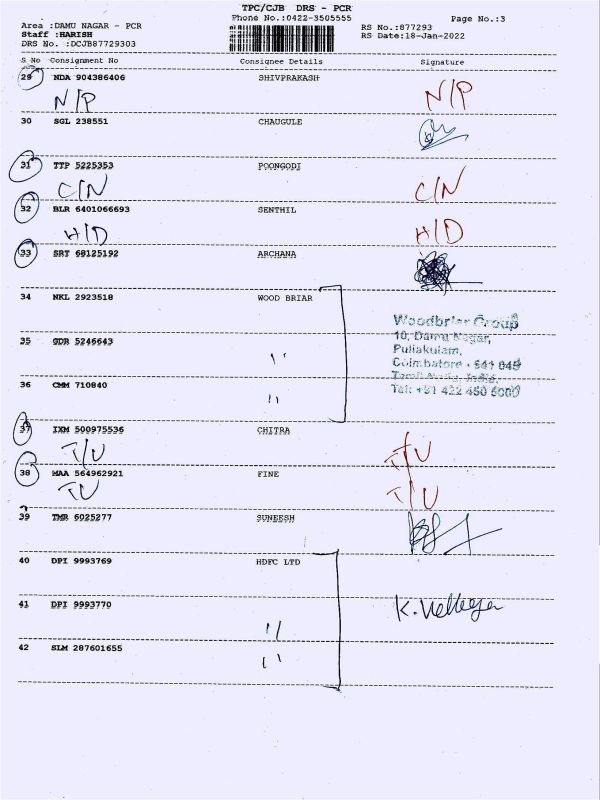 TPC/CJB DRS - PCR
Phone No.:0422-3505555
Page No.:3
Area :DAMU NAGAR - PCR
RS No.:877293
Staff :HARISH
RS Date:18-Jan-2022
DRS No. :DCJB87729303
S No Consignment No Consignee Details Signature
29 NDA 904386406 SHIVPRAKASH
N/P N/P
30 SGL 238551 CHAUGULE
31 TTP 5225353 POONGODI
C/N C/N
32 BLR 6401066693 SENTHIL
H/D H/D
33 SRT 68125192 ARCHANA
34 NKL 2923518 WOOD BRIAR
Woodbriar Group
10, Damu Nagar,
35 GDR 5246643
Puliakulam,
Coimbatore - 641 045
36 CMM 710840
Tamil Nadu, India.
Tel: +91 422 450 5000
37 IXM 500975536 CHITRA
T/U T/U
38 MAA 564962921 FINE
TU T/U
39 TMR 6025277 SUNEESH
40 DPI 9993769 HDFC LTD
41 DPI 9993770
"
42 SLM 287601655
"